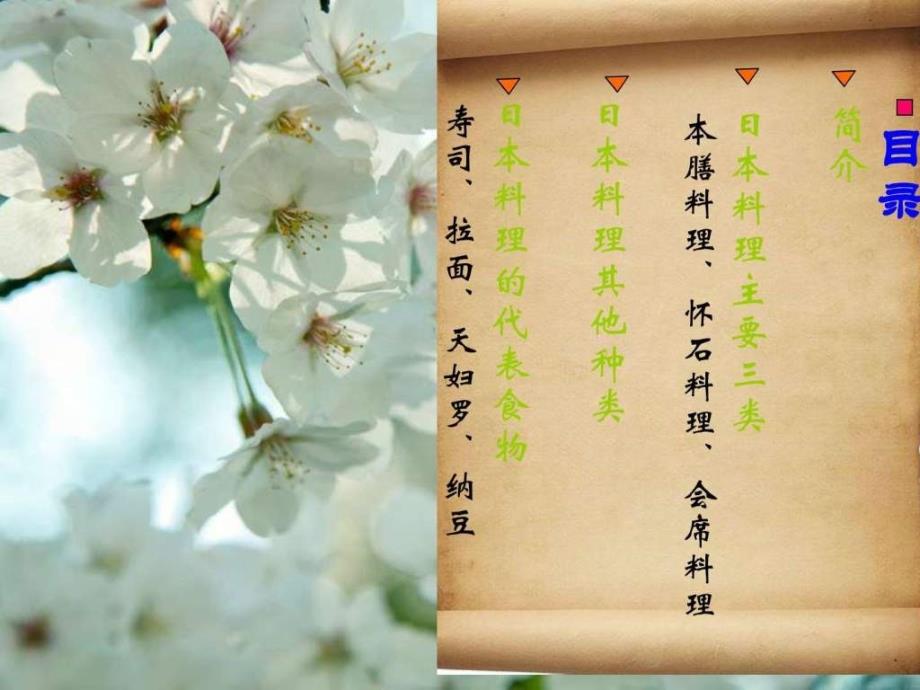 目录
简介
日本料理主要三类
本膳料理、怀石料理、会席料理
日本料理其他种类
日本料理的代表食物
寿司、拉面、天妇罗、纳豆